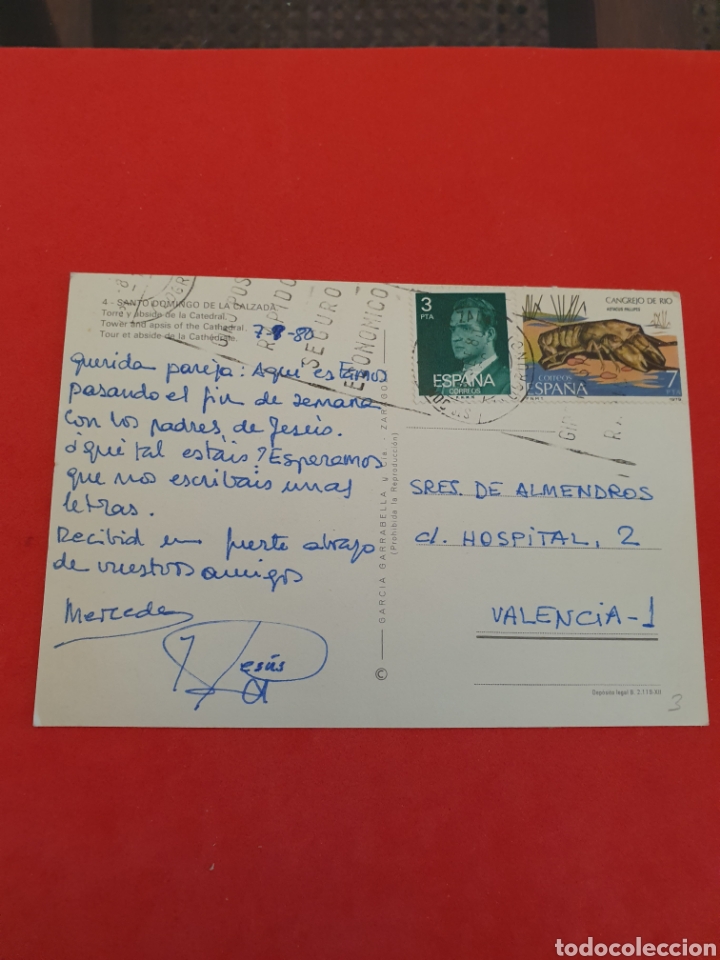 4 - SANTO DOMINGO DE LA CALZADA
Torre y ábside de la Catedral.
Tower and apsis of the Cathedral.
Tour et abside de la Cathédrale.
7-8-80
Querida pareja: Aquí estamos
pasando el fin de semana
con los padres de Jesús.
¿qué tal estáis? Esperamos
que nos escribais unas
letras.
Recibid un fuerte abrazo
de vuestros amigos
Mercedes
Jesús
GIRO POS
RAPIDO
SEGURO
ECONOMICO
3
PTA
ESPAÑA
CORREOS
CANGREJO DE RIO
CORREOS
ESPAÑA
7
PTA
1979
GIR
RA
GARCIA GARRABELLA y Cía. - ZARAGO
(Prohibida la Reproducción)
©
SRES. DE ALMENDROS
c/. HOSPITAL, 2
VALENCIA-1
Depósito legal B. 3.179-80
3
todocoleccion